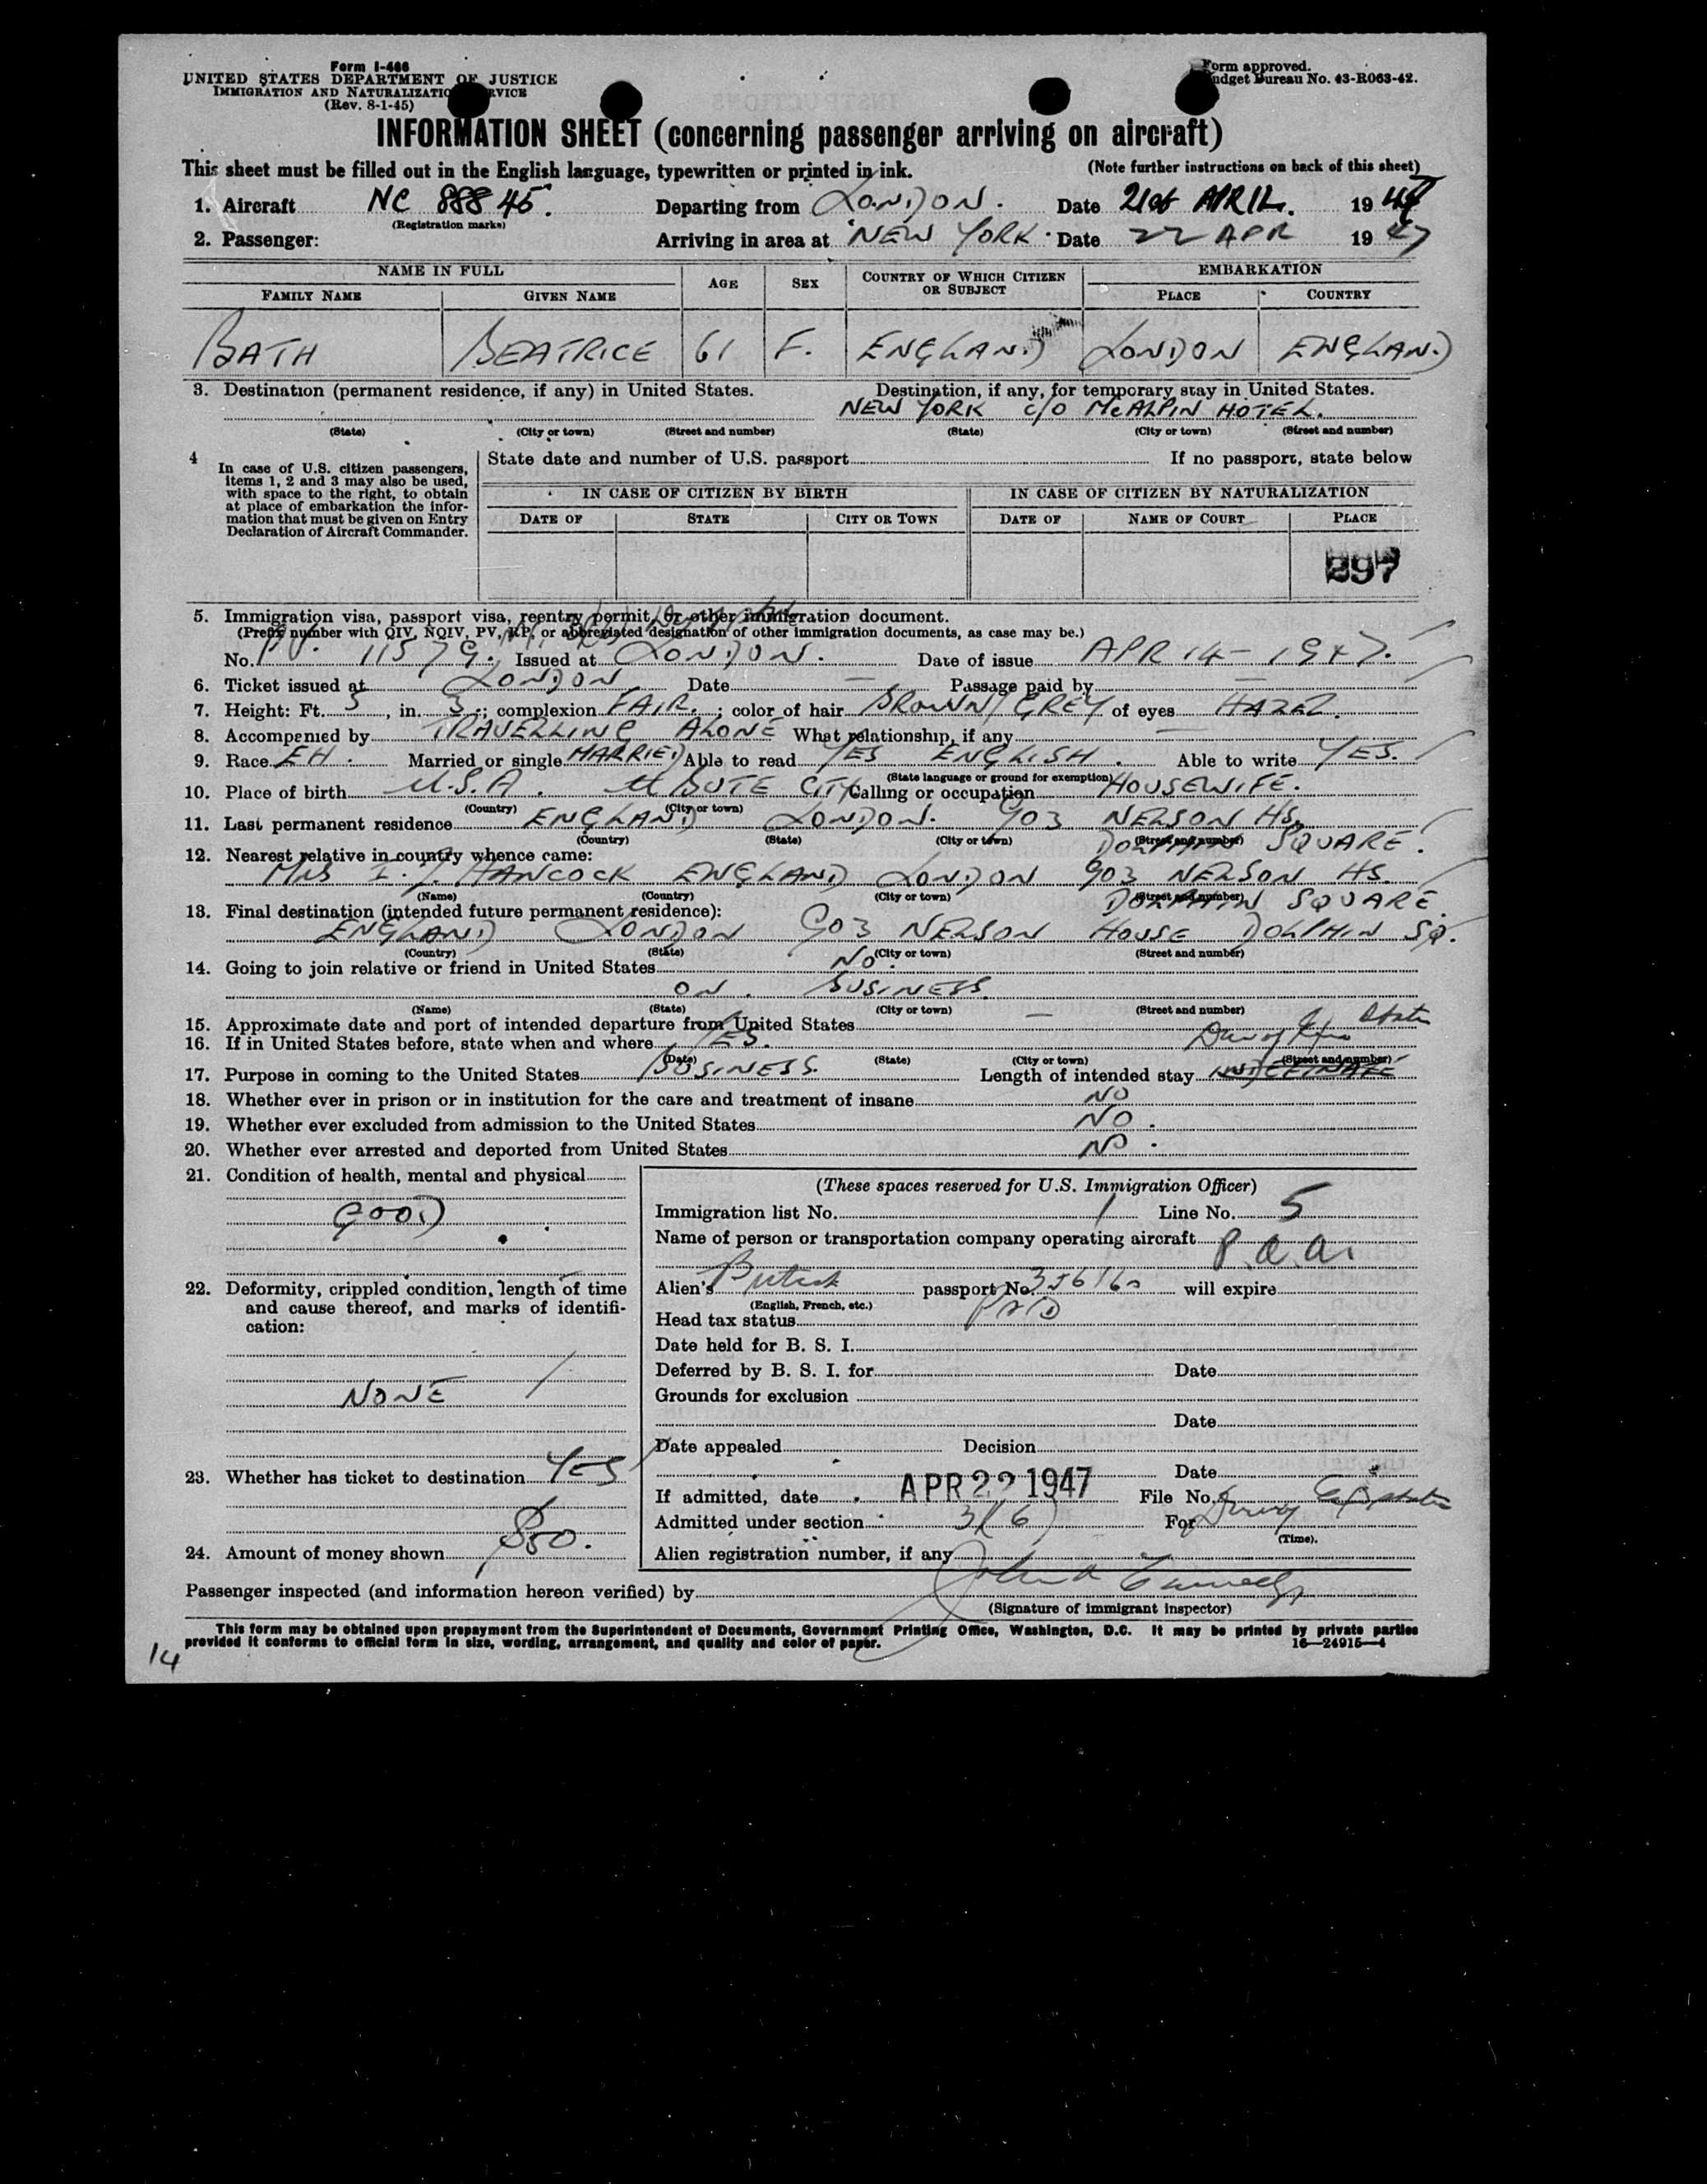 Form I-466
UNITED STATES DEPARTMENT OF JUSTICE
IMMIGRATION AND NATURALIZATION SERVICE
(Rev. 8-1-45)
Form approved.
Budget Bureau No. 43-R063-42.
INFORMATION SHEET (concerning passenger arriving on aircraft)
This sheet must be filled out in the English language, typewritten or printed in ink. (Note further instructions on back of this sheet)
1. Aircraft NC 88845. Departing from LONDON. Date 21st APRIL. 1947
(Registration marks)
2. Passenger: Arriving in area at NEW YORK Date 22 APR 1947
NAME IN FULL AGE SEX COUNTRY OF WHICH CITIZEN OR SUBJECT EMBARKATION
FAMILY NAME GIVEN NAME PLACE COUNTRY
BATH BEATRICE 61 F. ENGLAND LONDON ENGLAND
3. Destination (permanent residence, if any) in United States. Destination, if any, for temporary stay in United States.
NEW YORK c/o McALPIN HOTEL.
(State) (City or town) (Street and number) (State) (City or town) (Street and number)
4 In case of U.S. citizen passengers, items 1, 2 and 3 may also be used, with space to the right, to obtain at place of embarkation the information that must be given on Entry Declaration of Aircraft Commander.
State date and number of U.S. passport If no passport, state below
IN CASE OF CITIZEN BY BIRTH IN CASE OF CITIZEN BY NATURALIZATION
DATE OF STATE CITY OR TOWN DATE OF NAME OF COURT PLACE
297
5. Immigration visa, passport visa, reentry permit, or other immigration document.
(Prefix number with QIV, NQIV, PV, RP, or abbreviated designation of other immigration documents, as case may be.)
No. PV. 11579. Issued at LONDON. Date of issue APR 14 - 1947.
6. Ticket issued at LONDON Date — Passage paid by —
7. Height: Ft. 5, in. 3; complexion FAIR.; color of hair BROWN/GREY of eyes HAZEL.
8. Accompanied by TRAVELLING ALONE What relationship, if any —
9. Race EH. Married or single MARRIED Able to read YES ENGLISH. Able to write YES.
(State language or ground for exemption)
10. Place of birth U.S.A. BUTE CITY Calling or occupation HOUSEWIFE.
(Country) (City or town)
11. Last permanent residence ENGLAND LONDON. 903 NELSON HS.
(Country) (State) (City or town) (Street and number)
DOLPHIN SQUARE.
12. Nearest relative in country whence came:
MRS I. J. HANCOCK ENGLAND LONDON 903 NELSON HS.
(Name) (Country) (City or town) (Street and number)
DOLPHIN SQUARE.
13. Final destination (intended future permanent residence):
ENGLAND LONDON 903 NELSON HOUSE DOLPHIN SQ.
(Country) (State) (City or town) (Street and number)
14. Going to join relative or friend in United States NO.
ON BUSINESS.
(Name) (State) (City or town) (Street and number)
15. Approximate date and port of intended departure from United States —
16. If in United States before, state when and where YES.
(Date) (State) (City or town) (Street and number)
17. Purpose in coming to the United States BUSINESS. Length of intended stay
18. Whether ever in prison or in institution for the care and treatment of insane NO
19. Whether ever excluded from admission to the United States NO.
20. Whether ever arrested and deported from United States NO.
21. Condition of health, mental and physical
GOOD
22. Deformity, crippled condition, length of time and cause thereof, and marks of identification:
NONE
23. Whether has ticket to destination YES
24. Amount of money shown $50.
(These spaces reserved for U.S. Immigration Officer)
Immigration list No. 1 Line No. 5
Name of person or transportation company operating aircraft P.a.a.
Alien's British passport No. 356160 will expire
(English, French, etc.)
Head tax status PAID
Date held for B. S. I.
Deferred by B. S. I. for Date
Grounds for exclusion
Date
Date appealed Decision
Date
If admitted, date APR 22 1947 File No.
Admitted under section 3(6) For
(Time).
Alien registration number, if any
Passenger inspected (and information hereon verified) by
(Signature of immigrant inspector)
This form may be obtained upon prepayment from the Superintendent of Documents, Government Printing Office, Washington, D.C. It may be printed by private parties
provided it conforms to official form in size, wording, arrangement, and quality and color of paper. 16—24915—4
14